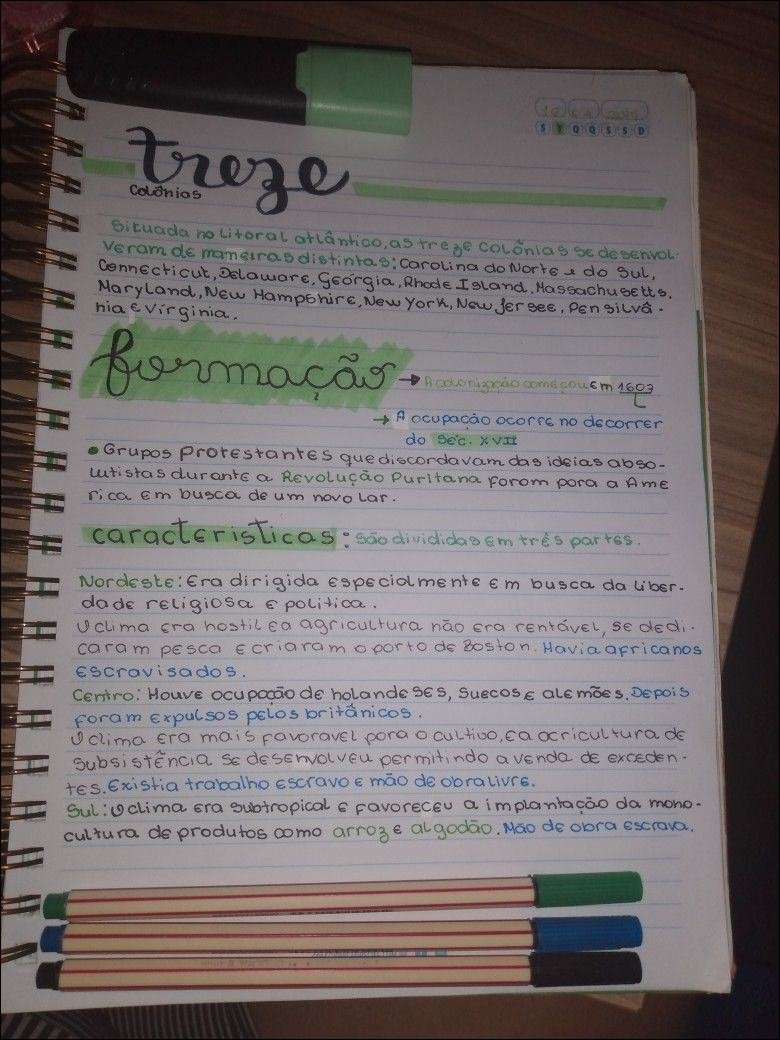 S T Q Q S S D
treze
Colônias
Situada no litoral atlântico, as treze colônias se desenvol-
veram de maneiras distintas: Carolina do Norte e do Sul,
Connecticut, Delaware, Geórgia, Rhode Island, Massachusetts,
Maryland, New Hampshire, New York, New Jersee, Pensilvâ-
nia e Virgínia.
formação → A colonização começou em 1607
→ A ocupação ocorre no decorrer
do Séc. XVII
• Grupos protestantes que discordavam das ideias abso-
lutistas durante a Revolução Puritana foram para a Ame
rica em busca de um novo lar.
caracteristicas: São divididas em três partes.
Nordeste: Era dirigida especialmente em busca da liber-
dade religiosa e politica.
O clima era hostil e a agricultura não era rentável, se dedi-
caram pesca e criaram o porto de Boston. Havia africanos
escravisados.
Centro: Houve ocupação de holandeses, suecos e alemães. Depois
foram expulsos pelos britânicos.
O clima era mais favoravel para o cultivo, e a acricultura de
subsistência se desenvolveu permitindo a venda de exceden-
tes. Existia trabalho escravo e mão de obra livre.
Sul: O clima era subtropical e favoreceu a implantação da mono-
cultura de produtos como arroz e algodão. Mão de obra escrava.